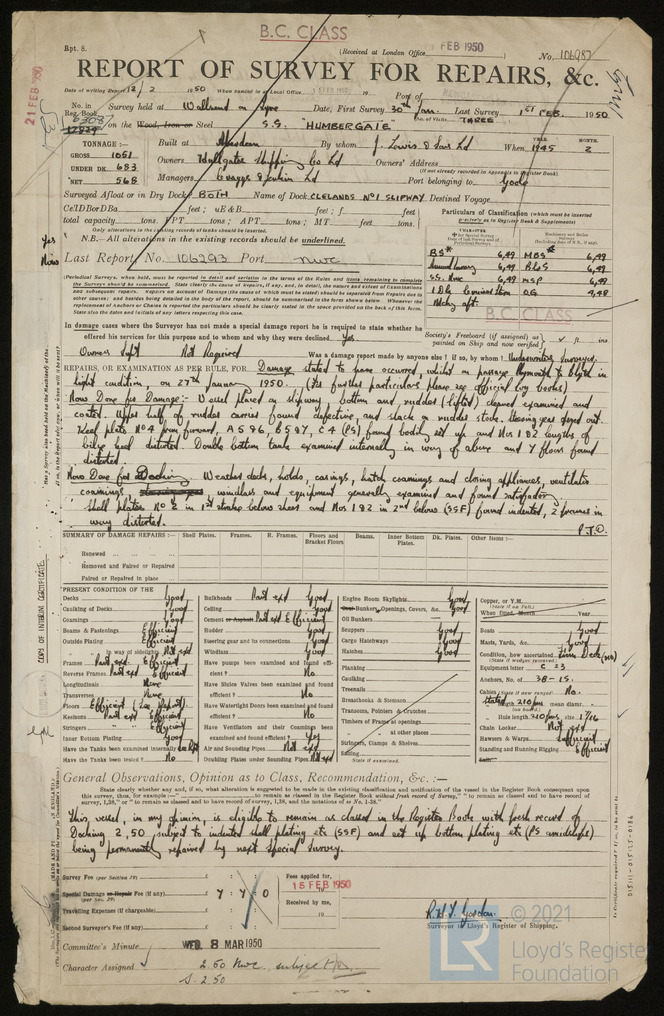 B.C. CLASS
Rpt. 8.
(Received at London Office FEB 1950)
No. 106987
REPORT OF SURVEY FOR REPAIRS, &c.
21 FEB 1950
Date of writing Report 12/2 1950 When handed in at Local Office 19 Port of
No. in Reg. Book Survey held at Wallsend on Tyne Date, First Survey 30th Jan. Last Survey 1st FEB. 1950
63087 (No. of Visits THREE)
17829 on the Wood, Iron or Steel S.S. "HUMBERGATE"
TONNAGE :— Built at Aberdeen By whom J. Lewis & Sons Ltd When YEAR. 1945 MONTH. 2
GROSS 1051
UNDER DK. 683
NET 568
Owners Hullgates Shipping Co Ltd Owners' Address
(If not already recorded in Appendix to Register Book)
Managers Craggs & Jenkin Ltd Port belonging to Goole
Surveyed Afloat or in Dry Dock BOTH Name of Dock CLELANDS No 1 SLIPWAY Destined Voyage
Cell DBor DBa feet; uE&B feet; f feet
total capacity tons. FPT tons; APT tons; MT feet tons.
Only alterations in the existing records of tanks should be inserted.
N.B.—All alterations in the existing records should be underlined.
Yes
Last Report No. 106293 Port nwc
Particulars of Classification (which must be inserted precisely as in Register Book & Supplements)
BS* 6,49 MBS* 6,49
Annual Survey 6,49 B&S 6,49
SS. Nwc 6,49 MSP 6,49
OG 4,48
Mchy aft
B.C. CLASS
(Periodical Surveys, when held, must be reported in detail and seriatim in terms of the Rules and items remaining to complete the Surveys should be summarised. State clearly the cause of Repairs, if any, and in detail, the nature and extent of Examinations
and subsequent repairs. Repairs on account of Damage (the cause of which must be stated) should be separated from Repairs due to
other causes; and besides being detailed in the body of the report, should be summarised in the form shown below. Whenever the
replacement of Anchors or Chains is reported the particulars should be clearly stated in the space provided on the back of this form.
State also the dates and initials of any letters respecting this case.
In damage cases where the Surveyor has not made a special damage report he is required to state whether he
offered his services for this purpose and to whom and why they were declined. Yes
Society's Freeboard (if assigned) as painted on Ship and now verified ft. ins.
Owners Supt Not Required
Was a damage report made by anyone else? if so, by whom? Underwriters Surveyor
REPAIRS, OR EXAMINATION AS PER RULE, FOR Damage stated to have occurred, whilst on passage Plymouth to Blyth in
light condition, on 27th January 1950. (For further particulars please see official log books)
Now Done for Damage:- Vessel placed on slipway, bottom and rudder (lifted) cleaned examined and
coated. Upper half of rudder carrier found defective, and slack on rudder stock. Steering gear opened out.
Keel plate No 4 from forward, A 5 & 6, B 5 & 7, C 4 (PS) found bodily set up and Nos 1 & 2 lengths of
bilge keel distorted. Double bottom tanks examined internally in way of above and 4 floors found
distorted.
Now Done for Docking Weather decks, holds, casings, hatch coamings and closing appliances, ventilator
coamings windlass and equipment generally examined and found satisfactory
Shell plates No 2 in 1st strake below sheer and Nos 1 & 2 in 2nd below (SSF) found indented, 2 frames in
way distorted.
P.T.O.
SUMMARY OF DAMAGE REPAIRS :— Shell Plates. Frames. R. Frames. Floors and Bracket Floors Beams. Inner Bottom Plates. Dk. Plates. Other Items :—
Renewed
Removed and Faired or Repaired
Faired or Repaired in place
PRESENT CONDITION OF THE
Decks Good
Caulking of Decks Good
Coamings Good
Beams & Fastenings Efficient
Outside Plating Efficient
" in way of sidelights Not exd
Frames Part exd Efficient
Reverse Frames Part exd Efficient
Longitudinals None
Transverses None
Floors Efficient (See Report)
Keelsons Part exd Efficient
Stringers Efficient
Inner Bottom Plating Good
Have the Tanks been examined internally
Have the Tanks been tested? No
Bulkheads Part exd Good
Ceiling Good
Cement or Asphalt Part exd Efficient
Rudder Good
Steering gear and its connections Good
Windlass Good
Have pumps been examined and found efficient? No
Have Sluice Valves been examined and found efficient? No
Have Watertight Doors been examined and found efficient? No
Have Ventilators and their Coamings been examined and found efficient? Yes
Air and Sounding Pipes Not exd
Doubling Plates under Sounding Pipes Not exd
Engine Room Skylights Good
Coal Bunkers, Openings, Covers, &c. Good
Oil Bunkers
Scuppers Good
Cargo Hatchways Good
Hatches Good
Planking
Caulking
Treenails
Breasthooks & Stemson
Transoms, Pointers & Crutches
Timbers of Frame at openings
" " at other places
Stringers, Clamps & Shelves
Salting
State if examined.
Copper, or Y.M.
(State if on Felt.)
When fitted, Month Year
Boats Good
Masts, Yards, &c. Good
Condition, how ascertained From Deck
(State if wedges removed.)
Equipment letter C 23
Anchors, No. of 3B-1S.
Cables (State if now ranged) No.
" length 210 fms mean diamr.
(on board)
" Rule length 210 fms size 1 7/16
Chain Locker Not exd
Hawsers & Warps Sufficient
Standing and Running Rigging Efficient
Sails
General Observations, Opinion as to Class, Recommendation, &c. :—
State clearly whether any and, if so, what alteration is suggested to be made in the existing classification and notification of the vessel in the Register Book consequent upon
this survey, thus, for example:—
This vessel, in my opinion, is eligible to remain as classed in the Register Book with fresh record of
Docking 2,50 subject to indented shell plating etc (SSF) and set up bottom plating etc (PS amidships)
being permanently repaired by next Special Survey.
Survey Fee (per Section 29) £ : :
Special Damage or Repair Fee (if any) £ 7 : 7 : 0
(per Sec. 29)
Travelling Expenses (if chargeable) £ : :
Second Surveyor's Fee (if any) £ : :
Fees applied for,
15 FEB 1950
Received by me,
19
Surveyor to Lloyd's Register of Shipping.
Committee's Minute WED. 8 MAR 1950
Character Assigned 2.50 Nwc. subject
S 2.50
COPY OF INTERIM CERTIFICATE
© 2021
LR
Lloyd's Register
Foundation